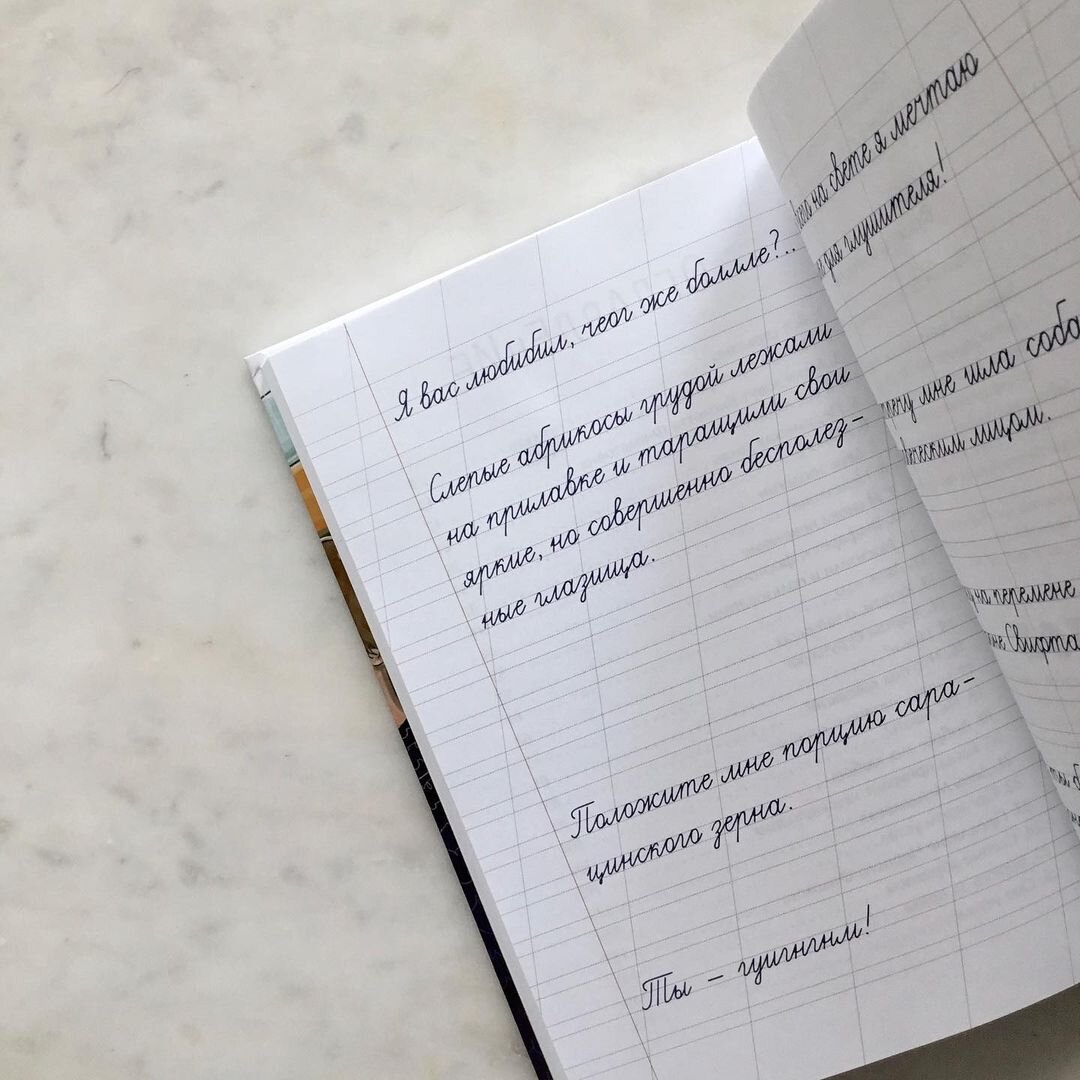 Я вас любибил, чеог же боллле?..
Слепые абрикосы грудой лежали
на прилавке и таращили свои
яркие, но совершенно бесполез-
ные глазища.
Положите мне порцию сара-
цинского зерна.
Ты – гуигнгнм!
на свете я мечтаю
для глушителя!
мне шла соба
лицом.
на перемене
Свифта